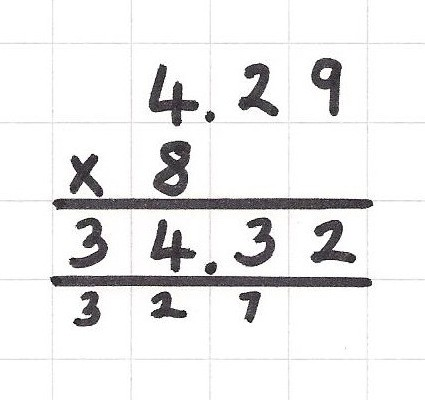 4.29
x 8
34.32
3 2 7